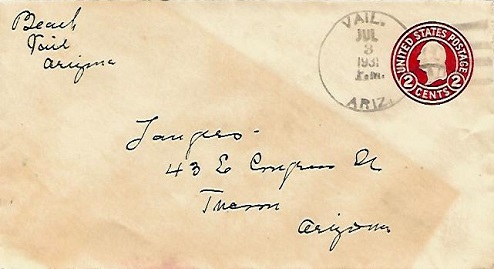 Beach
Vail
Arizona
VAIL,
JUL
3
1931
P.M.
ARIZ.
UNITED STATES POSTAGE
2 CENTS 2
43 E Congress St
Tucson
Arizona